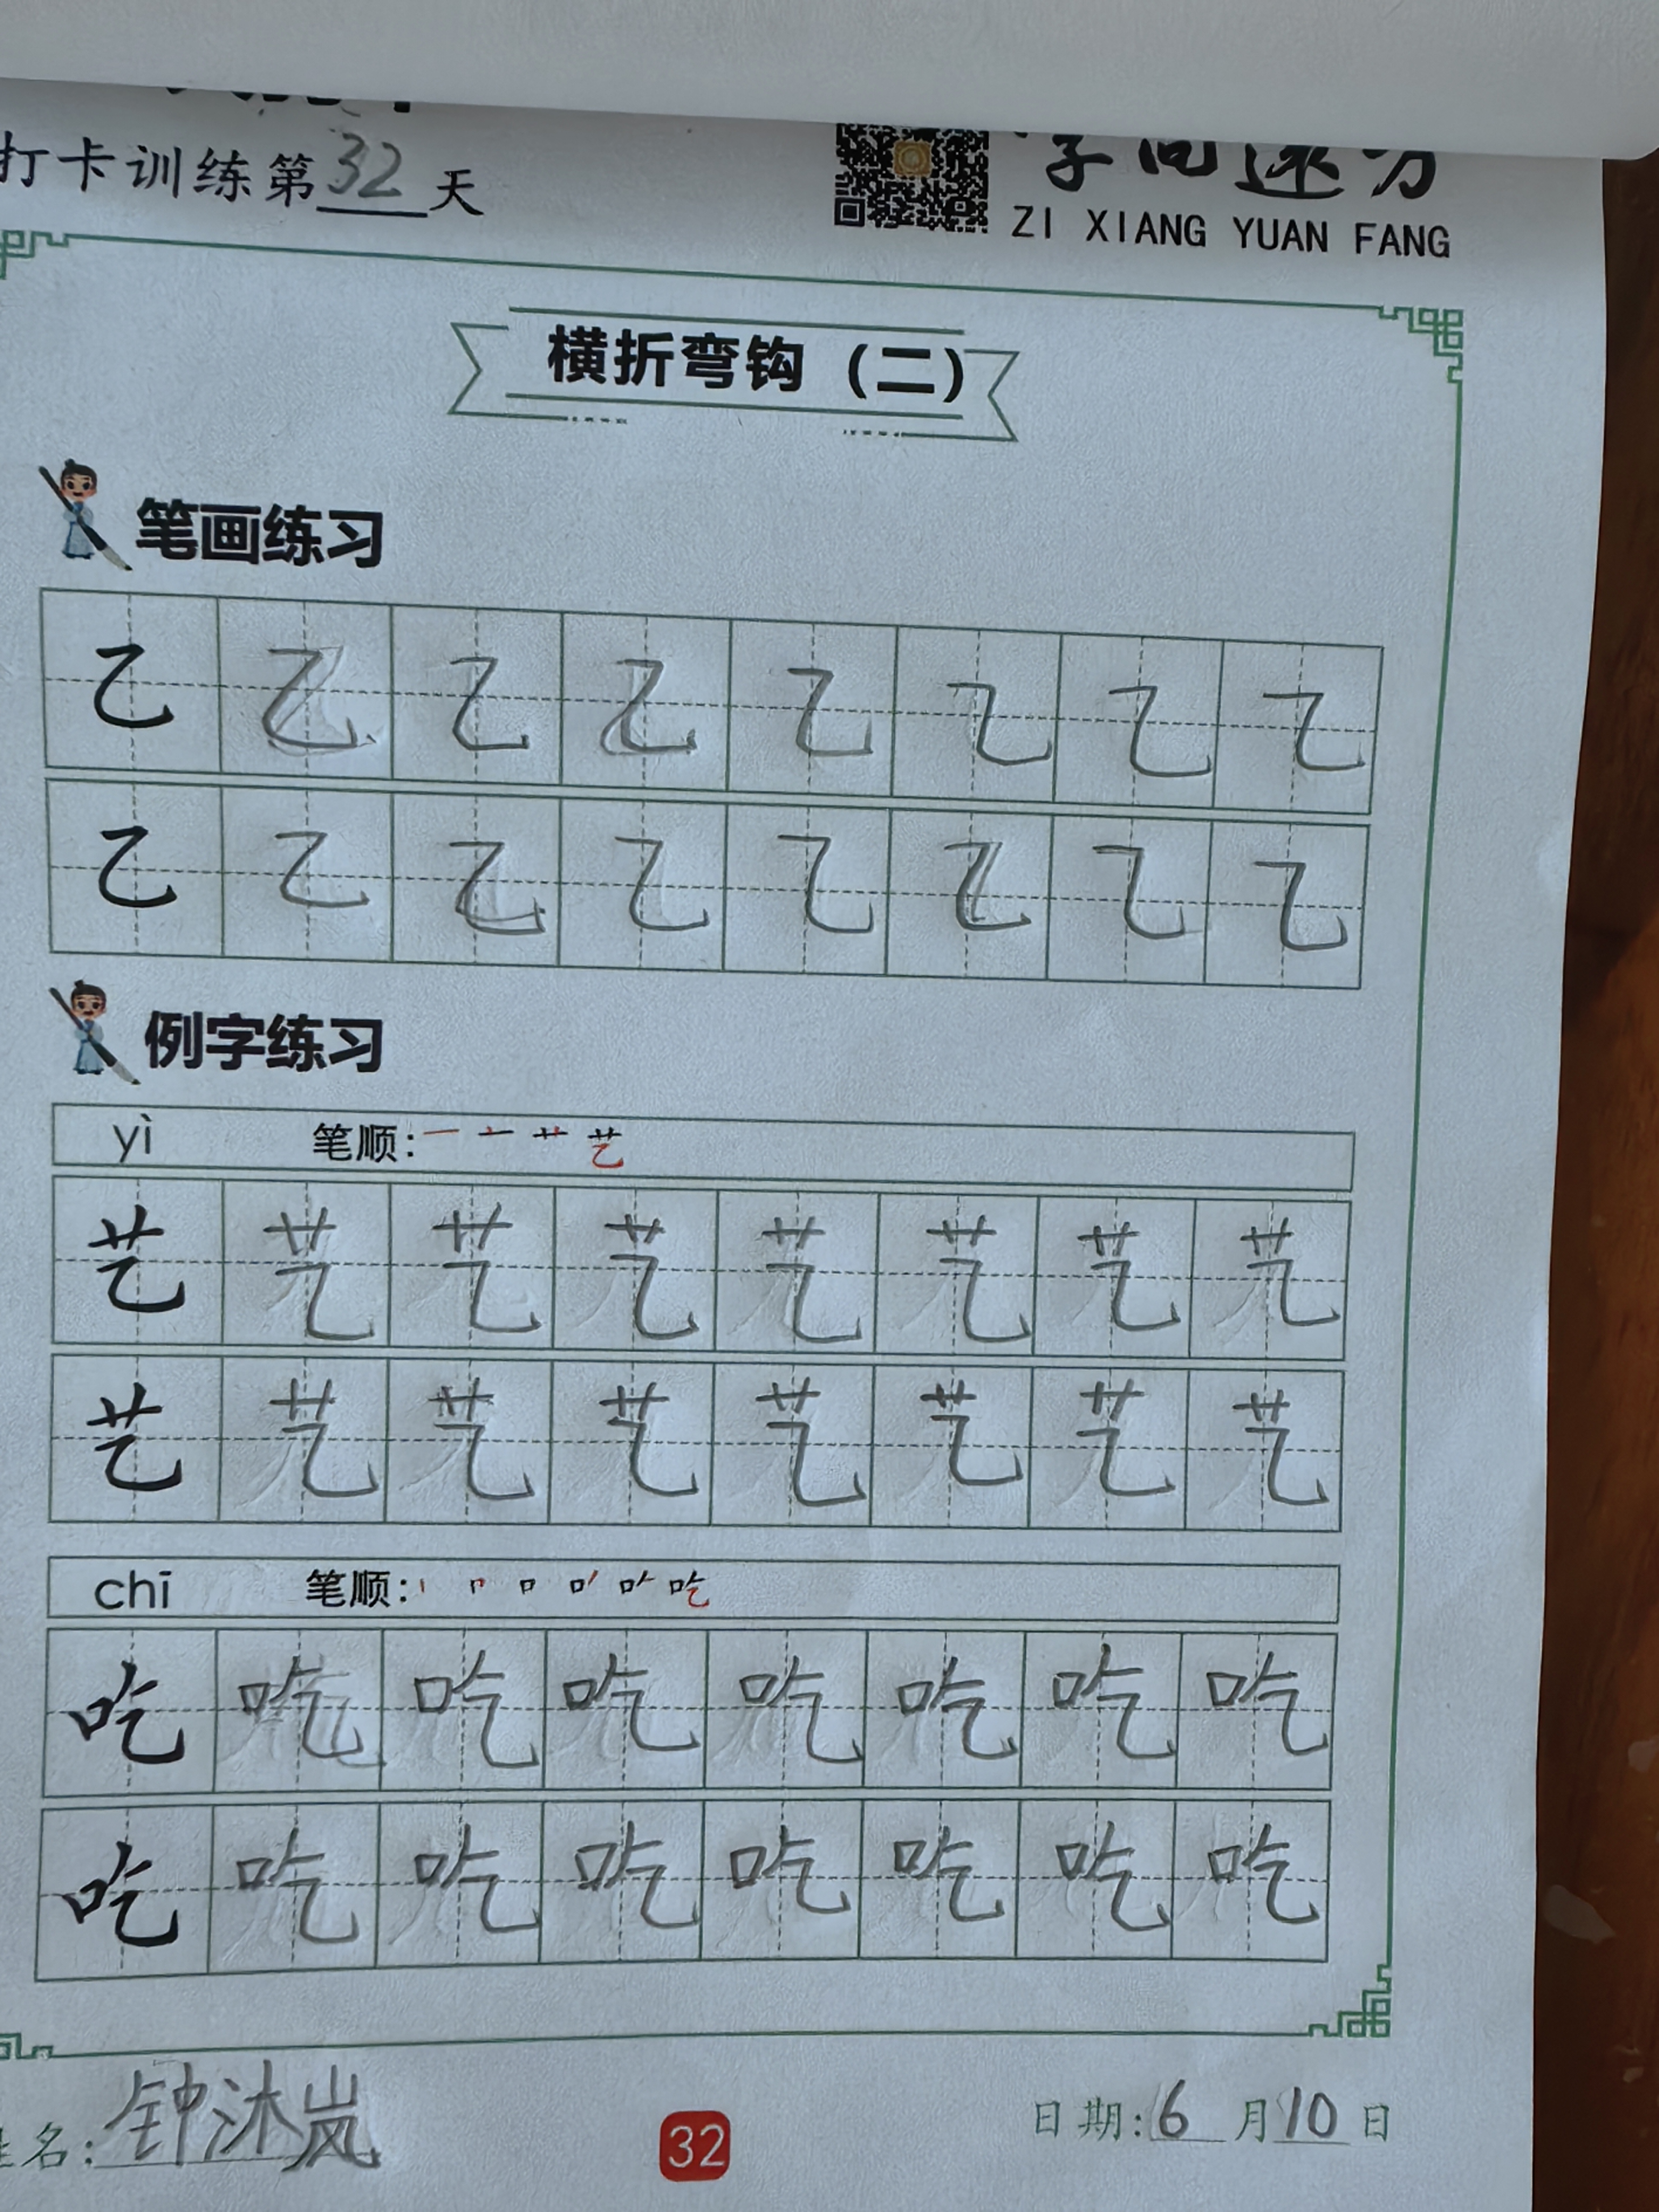 打卡训练第32天
ZI XIANG YUAN FANG
横折弯钩（二）
笔画练习
乙 乙 乙 乙 乙 乙 乙 乙
乙 乙 乙 乙 乙 乙 乙 乙
例字练习
yì 笔顺: 艺
艺 艺 艺 艺 艺 艺 艺 艺
艺 艺 艺 艺 艺 艺 艺 艺
chī 笔顺: 吃
吃 吃 吃 吃 吃 吃 吃 吃
吃 吃 吃 吃 吃 吃 吃 吃
姓名:钟沐岚
32
日期:6月10日